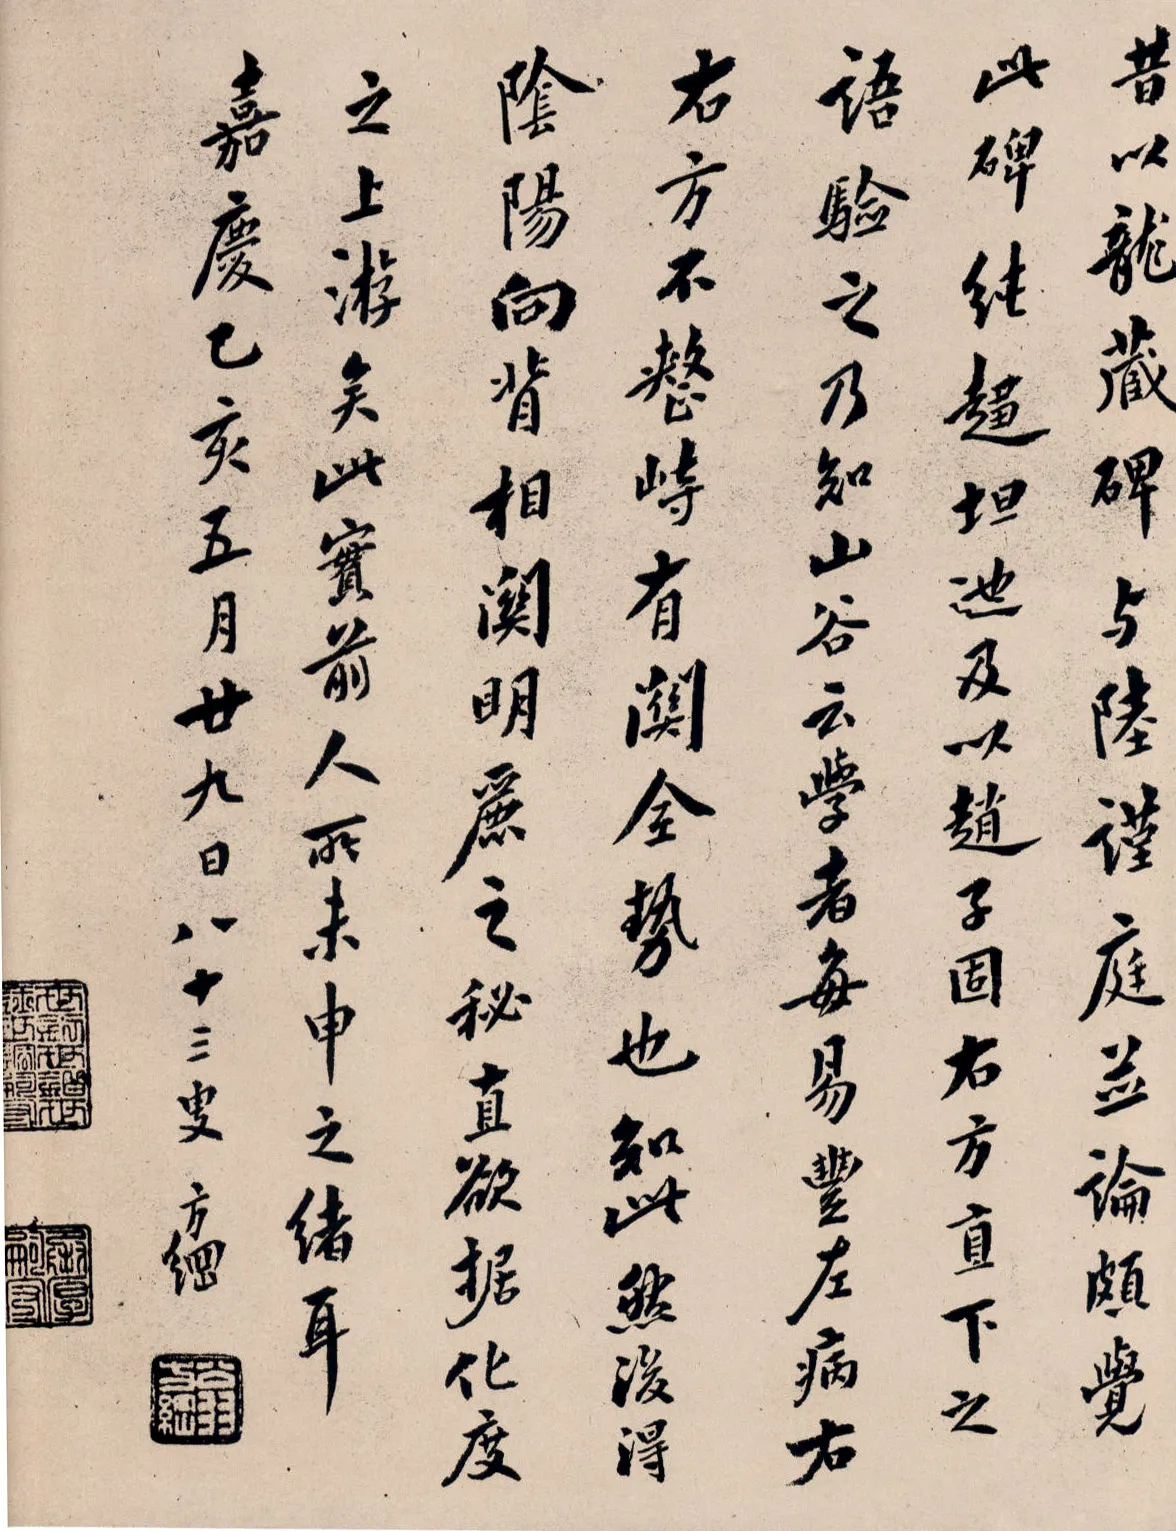 昔以龍藏碑与陸謹庭並論頗覺
此碑純趨坦迆及以趙子固右方直下之
語驗之乃知山谷云學者每易豐左病右
右方不整峙有闗全勢也如此然後得
陰陽向背相闗明麗之秘直欲据化度
之上游矣此實前人所未申之緒耳
嘉慶乙亥五月廿九日八十三叟方綱
翁方綱